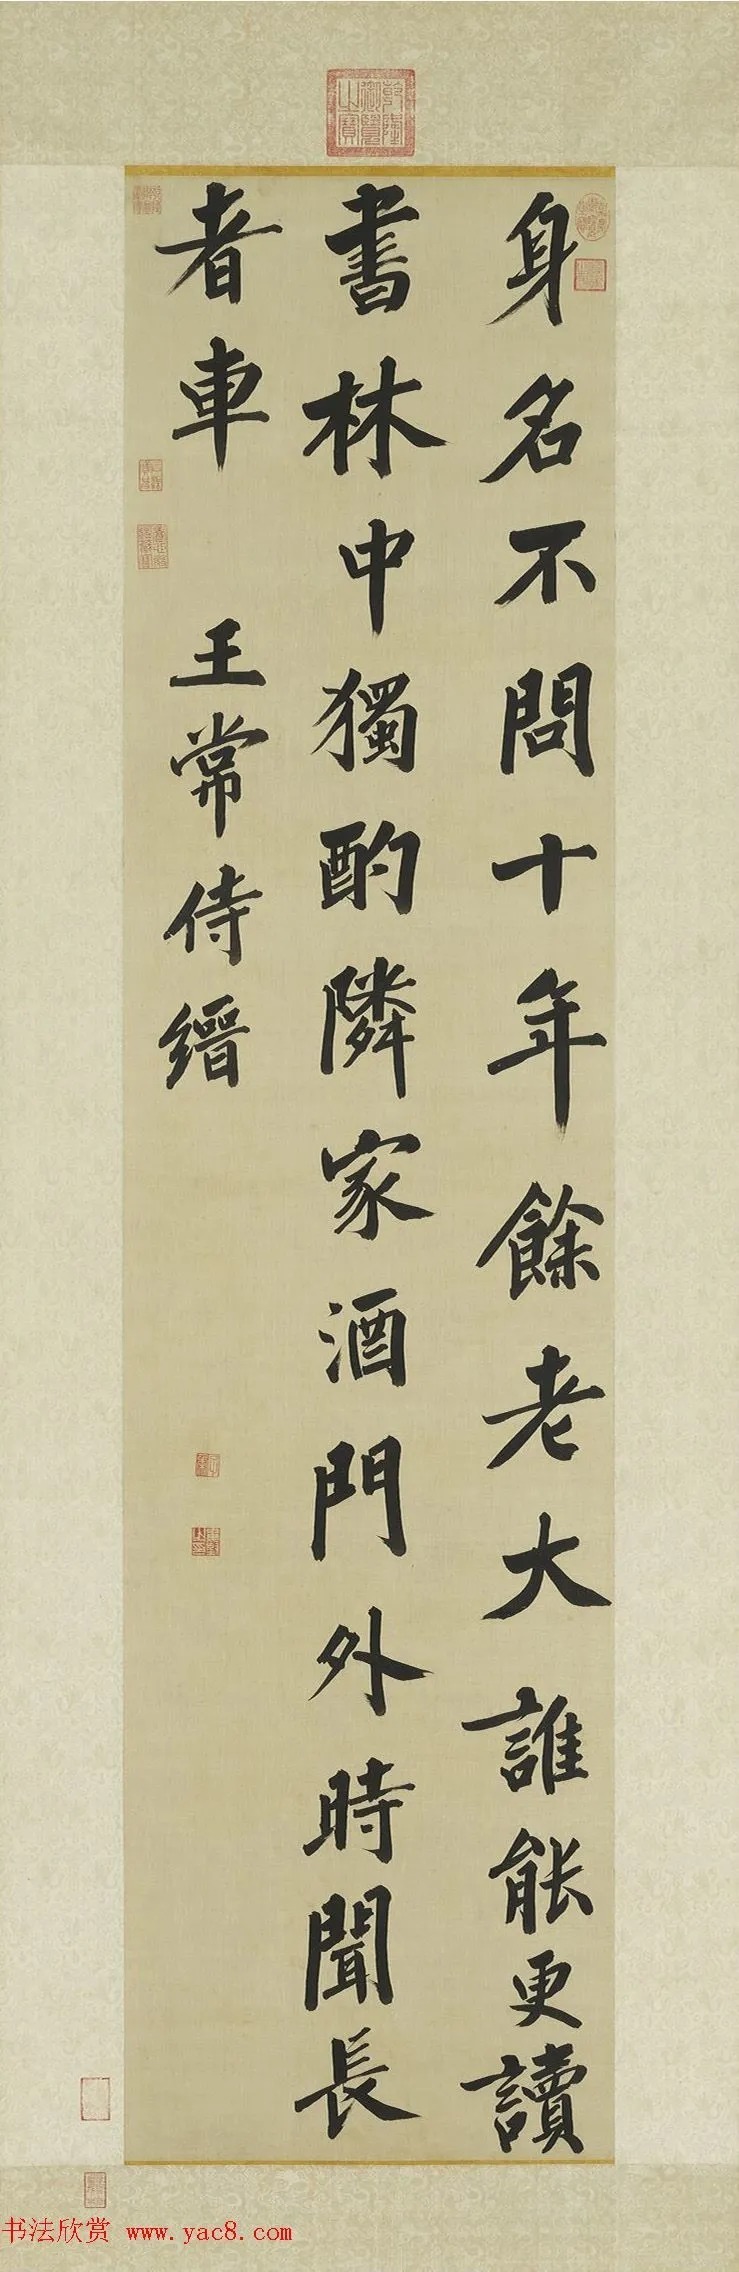 乾隆御覽之寶
身名不問十年餘老大誰能更讀
書林中獨酌隣家酒門外時聞長
者車
王常侍縉
书法欣赏 www.yac8.com